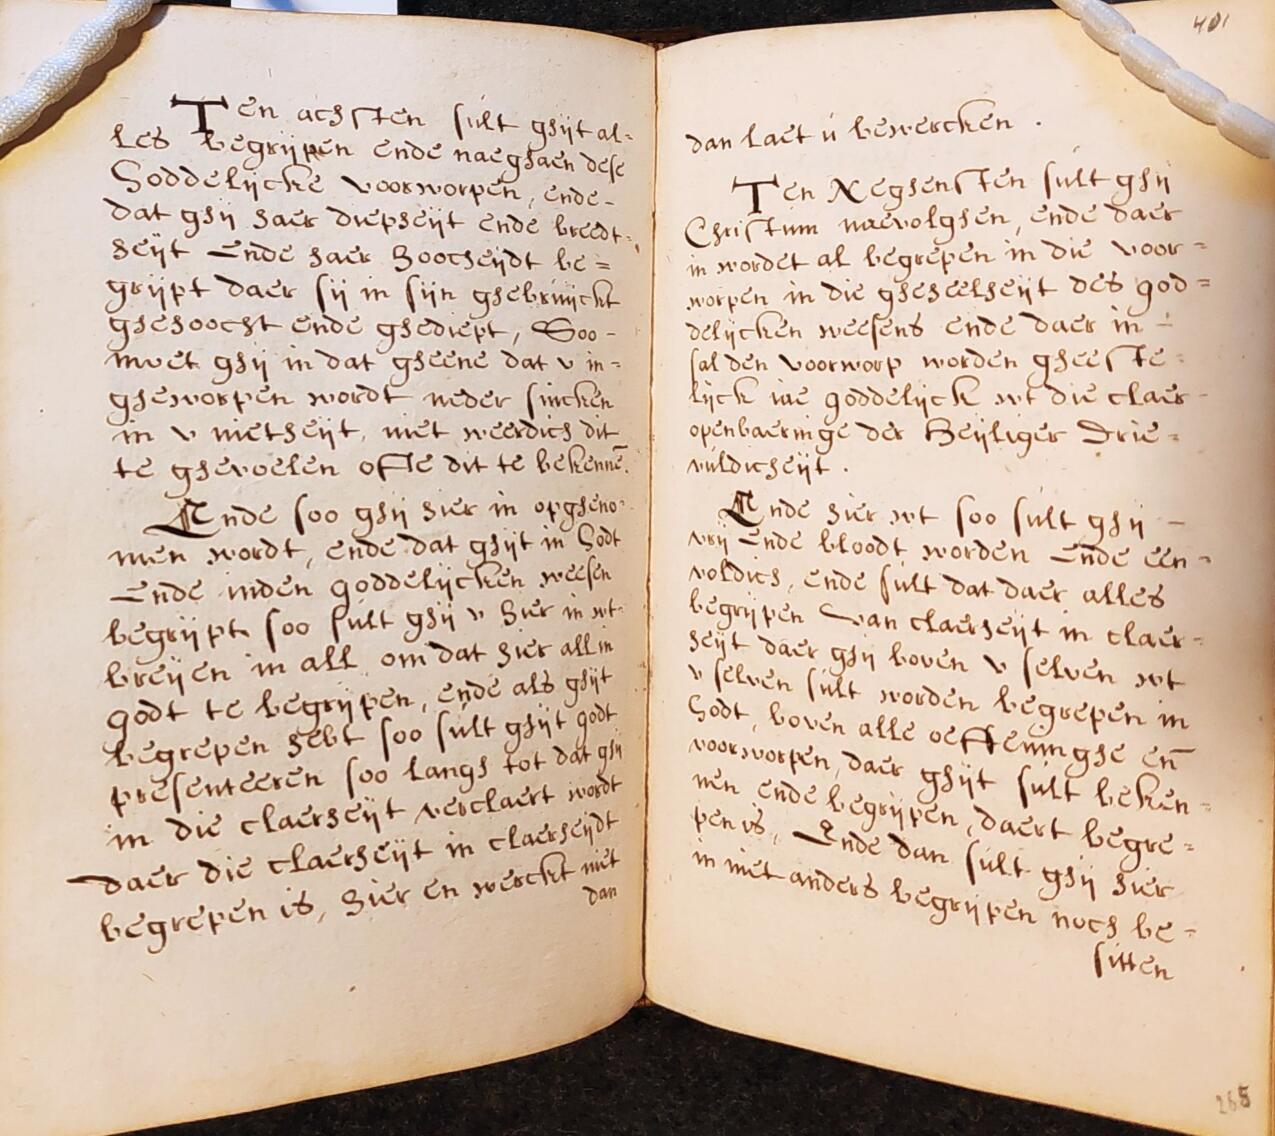 Ten achsten sult ghijt al=
les begrijpen ende naeghaen dese
Goddelijcke voorworpen, ende-
dat ghij haer diepheijt ende breedt=
heijt Ende haer Hoocheijdt be=
grijpt daer sij in sijn ghebruijckt
ghehoocht ende ghediept, Soo-
moet ghij in dat gheene dat v in=
gheworpen wordt neder sincken
in v nietheijt, niet weerdich dit
te ghevoelen ofte dit te bekennē.
Ende soo ghij hier in opgheno=
men wordt, ende dat ghijt in Godt
Ende inden goddelijcken weesen
begrijpt soo sult ghij v hier in wt-
breijen in all om dat hier all in
godt te begrijpen, ende als ghijt
begrepen hebt soo sult ghijt godt
presenteeren soo langh tot dat ghij
in die claerheijt verclaert wordt
daer die claerheijt in claerheijdt
begrepen is, hier en werckt niet
dan
401
dan laet ú bewercken.
Ten Neghensten sult ghij
Christum naevolghen, ende daer
in wordet al begrepen in die voor=
worpen in die gheheelheijt des god=
delijcken weesens ende daer in -
sal den voorworp worden gheeste=
lijck ine goddelijck wt die claer-
openbaeringe der Heijliger Drie=
vuldicheijt.
Ende hier wt soo sult ghij -
vrij Ende bloodt worden Ende een=
voldich, ende sult dat daer alles
begrijpen van claerheijt in claer=
heijt daer ghij boven v selven wt
v selven sult worden begrepen in
Godt, boven alle oeffeninghe eñ
voorworpen, daer ghijt sult beken=
nen ende begrijpen, daert begre=
pen is, Ende dan sult ghij hier
in niet anders begrijpen noch be=
sitten
265